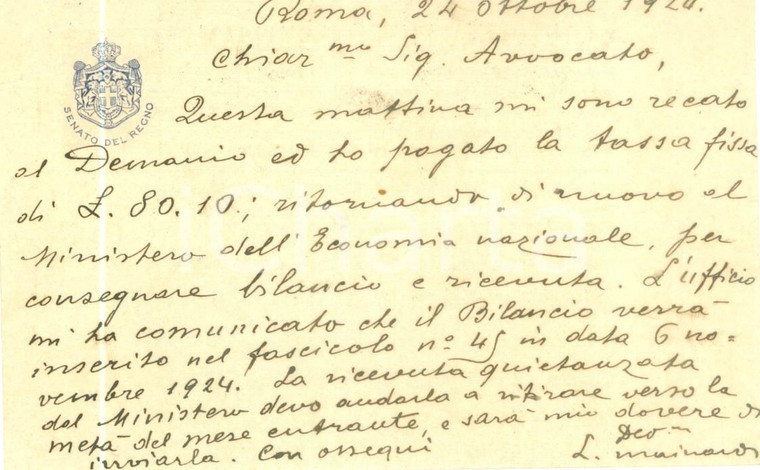 Roma, 24 Ottobre 1924.
Chiar.mo Sig. Avvocato,
SENATO DEL REGNO
Questa mattina mi sono recato
al Demanio ed ho pagato la tassa fissa
di £. 80.10.; ritornando di nuovo al
Ministero dell'Economia nazionale, per
consegnare bilancio e ricevuta. L'ufficio
mi ha comunicato che il Bilancio verrà
inserito nel fascicolo nº 45 in data 6 no=
vembre 1924. La ricevuta quietanzata
del Ministero devo andarla a ritirare verso la
metà del mese entrante, e sarà mio dovere di
inviarla. Con ossequi
Dev.mo
L. Mainardi